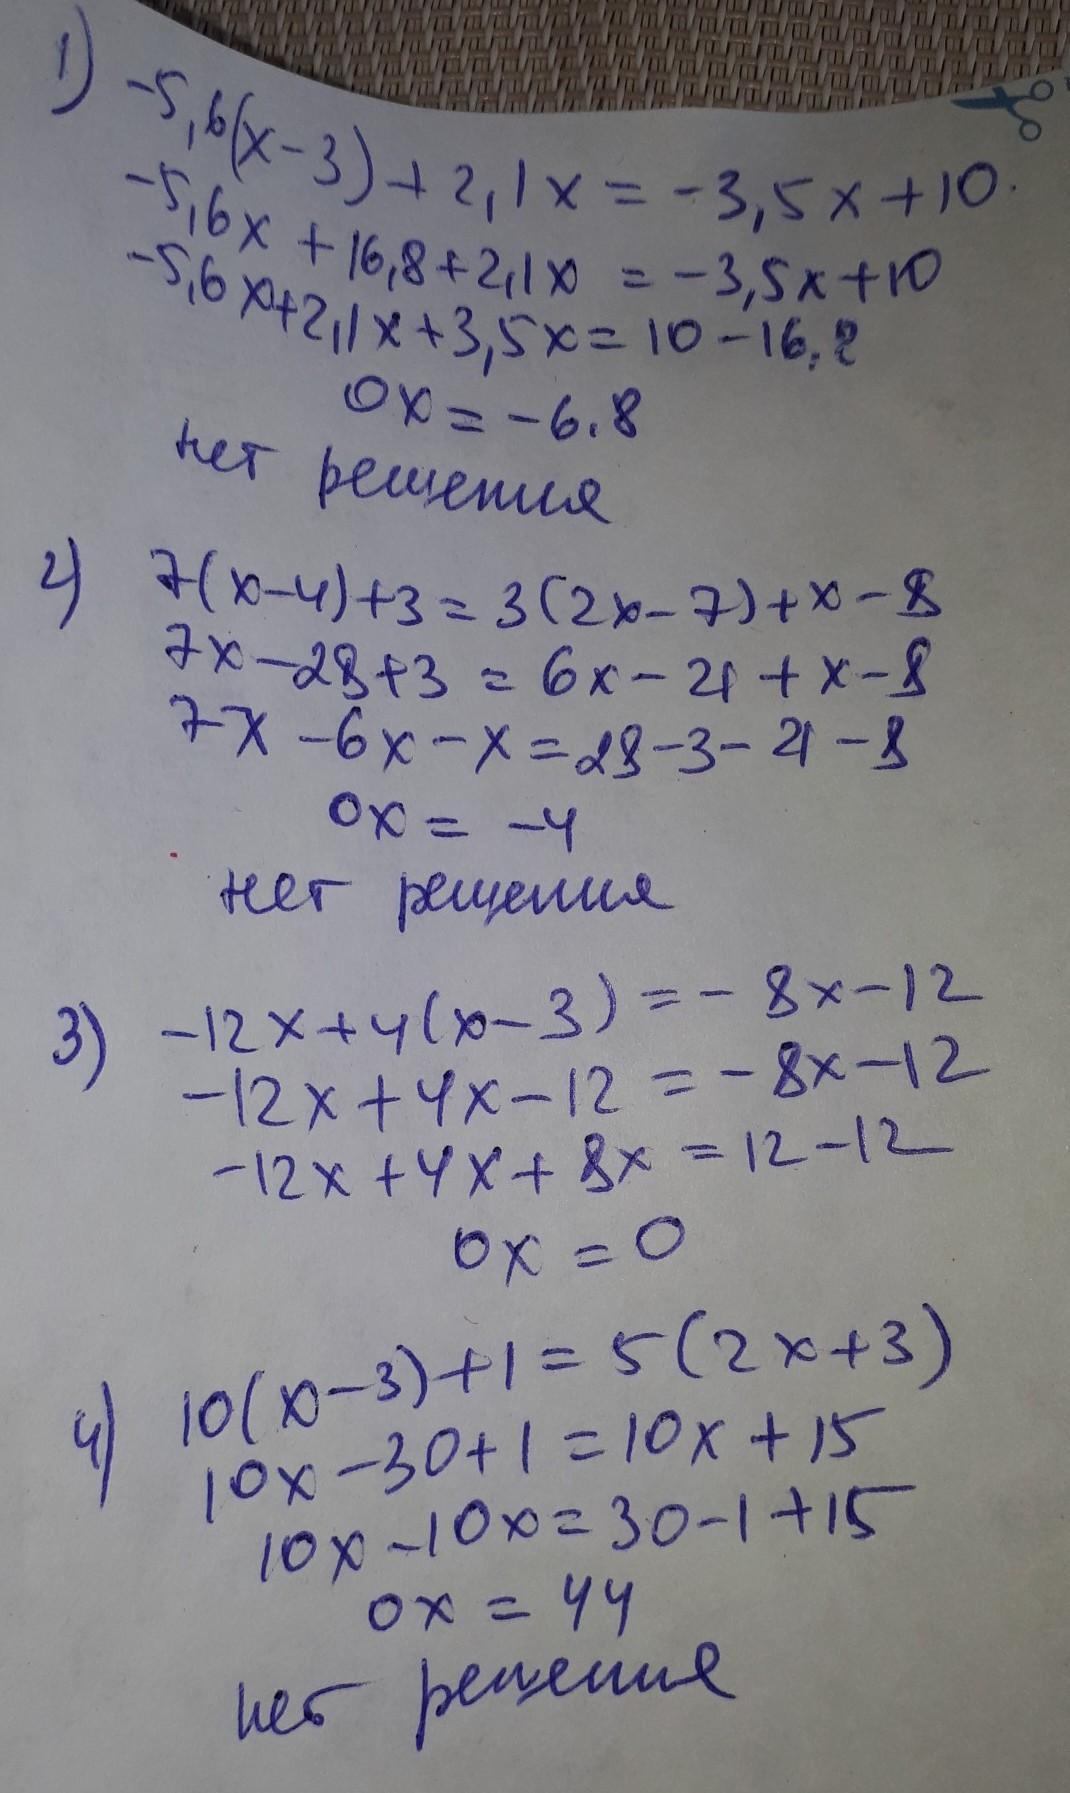 1) -5,6(x-3)+2,1x=-3,5x+10.
-5,6x+16,8+2,1x=-3,5x+10
-5,6x+2,1x+3,5x=10-16,8
0x=-6.8
нет решения
2) 7(x-4)+3=3(2x-7)+x-8
7x-28+3=6x-21+x-8
7x-6x-x=28-3-21-8
0x=-4
нет решения
3) -12x+4(x-3)=-8x-12
-12x+4x-12=-8x-12
-12x+4x+8x=12-12
0x=0
4) 10(x-3)+1=5(2x+3)
10x-30+1=10x+15
10x-10x=30-1+15
0x=44
нет решения